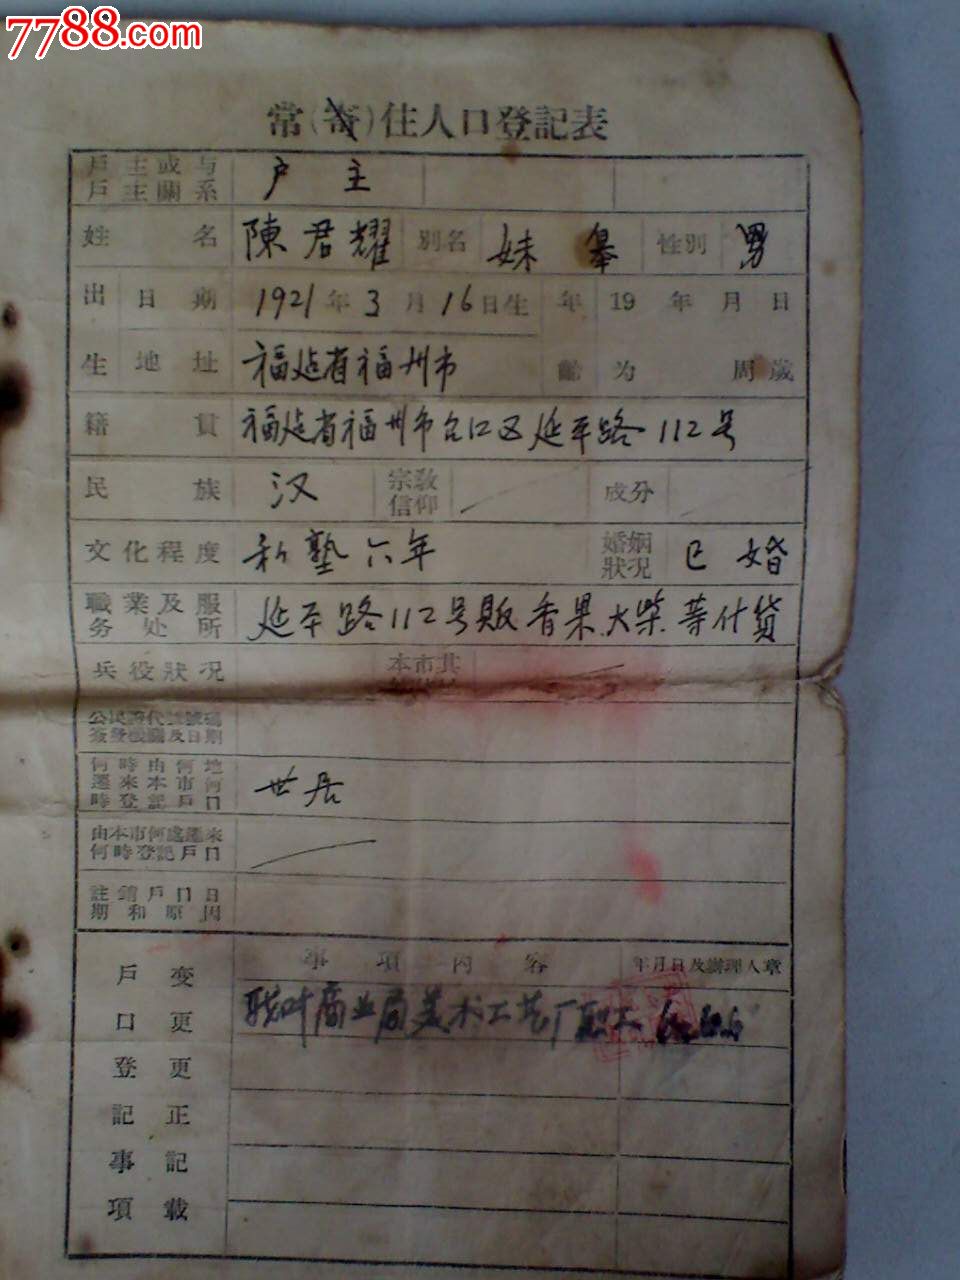 7788.com
常(寄)住人口登記表
戶主或与
戶主關系 户主
姓名 陳君耀 別名 妹皋 性別 男
出生 日期 1921年3月16日生 年齡 19 年 月 日
地址 福建省福州市 为 周歲
籍貫 福建省福州市台江区延平路112号
民族 汉 宗教信仰 成分
文化程度 私塾六年 婚姻狀况 已婚
職業及服
务处所 延平路112号販香果.大柴.等什貨
兵役狀况 本市其
簽發機關及日期
何時由何地
遷来本市何
時登記戶口 世居
由本市何處遷来
何時登記戶口
註銷戶口日
期和原因
戶口登記事項 变更更正記載
事項內容 年月日及辦理人章
商业局美术工艺厂职工